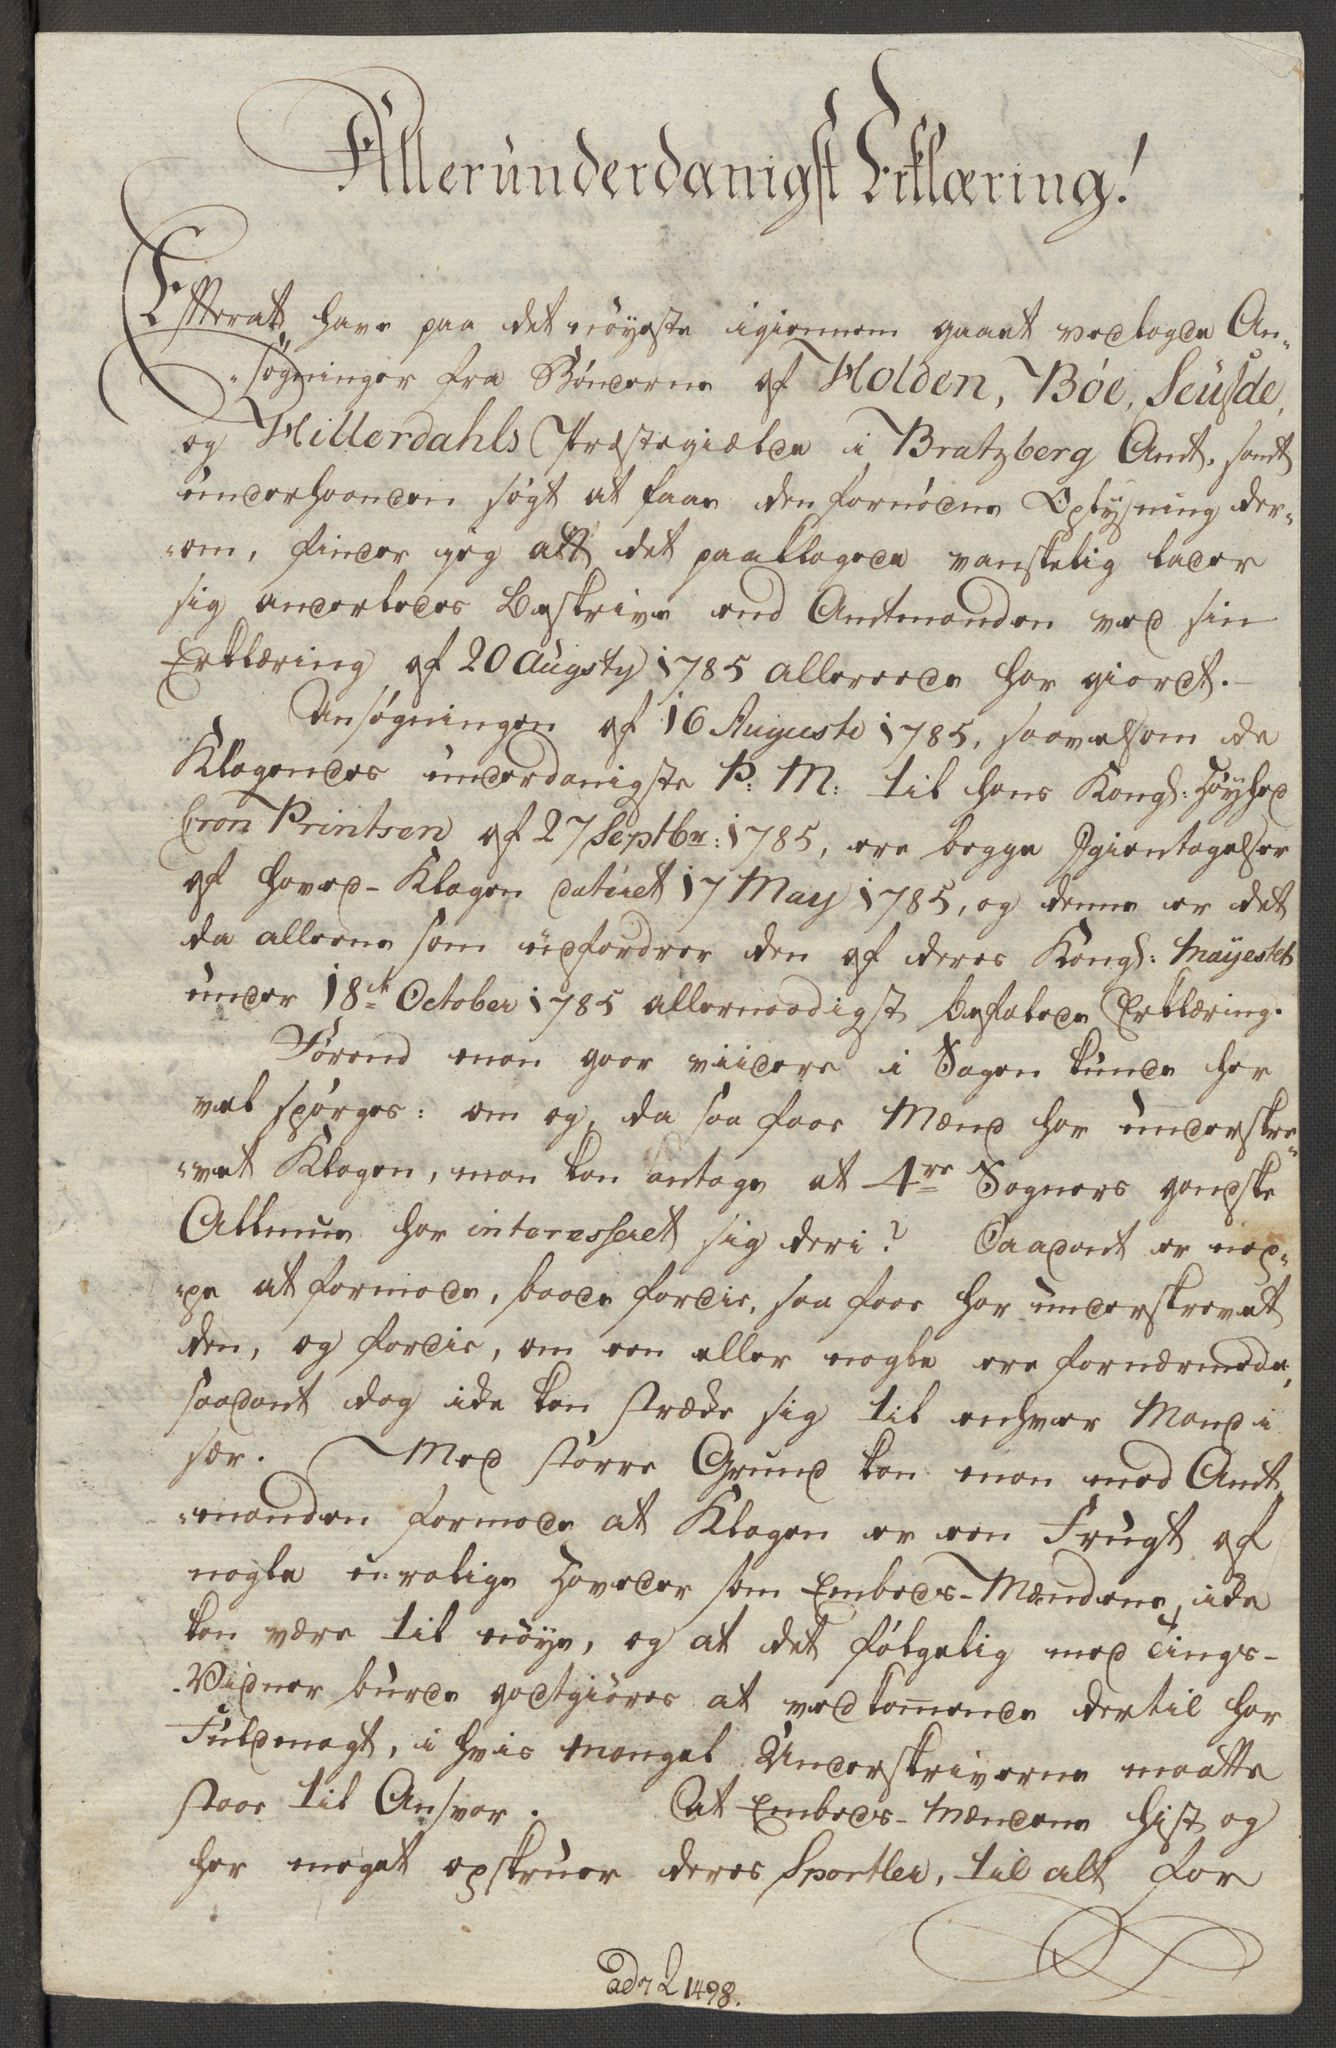 Allerunderdanigst Erklæring!
Efterat have paa det nöyeste igiennem gaaet vedlagde An-
-søgninger fra Bönderne af Holden, Böe, Seufde,
og Hitterdahls Præstegiælde i Bratzberg Amt, samt
underhaanden søgt at faae den fornödne Oplysning der-
-om, finder jeg att det paaklagede vanskelig lader
sig anderledes beskrive end Amtmanden ved sin
Erklæring af 20 Augsty 1785 allereede har giordt.-
Ansøgningen af 16 Augusti 1785, saavelsom de
Klagendes underdanigste P: M: til hans Kongl: Höyhed
Cron Printsen af 27 Septbr: 1785, ere begge Igientagelser
af Hoved-Klagen dateret 17 May 1785, og denne er det
da alleene som udfordrer den af deres Kongl: Mayestet
under 18de October 1785 allernaadigst befalede Erklæring.
Förend man gaar viidere i Sagen kunde her
vel spørges: om og, da saa faae Mænd har underskre-
-vet Klagen, man kan antage at 4re Sogners gandske
Allmue har interesseret sig deri? Saadant er nep-
-pe at formode, baade fordie, saa faae har underskrevet
den, og fordie, om een eller nogle ere fornærmede,
saadant dog ikke kan stræde sig til enhver Mand i
sær. Med större Grund kan man med Amt-
-manden formode at Klagen er een Frugt af
nogle urolige Hoveder som Embeds-Mændene, ikke
kan være til nöye, og at det fölgelig med Tings-
-Vidner burde godtgiöres at vedkommende dertil har
Fuldmagt, i hvis Mangel Underskriverne maatte
staae til Ansvar. At Embeds-Mændene hist og
her meget opskruer deres Sportler, til alt for
ad No L 1498.